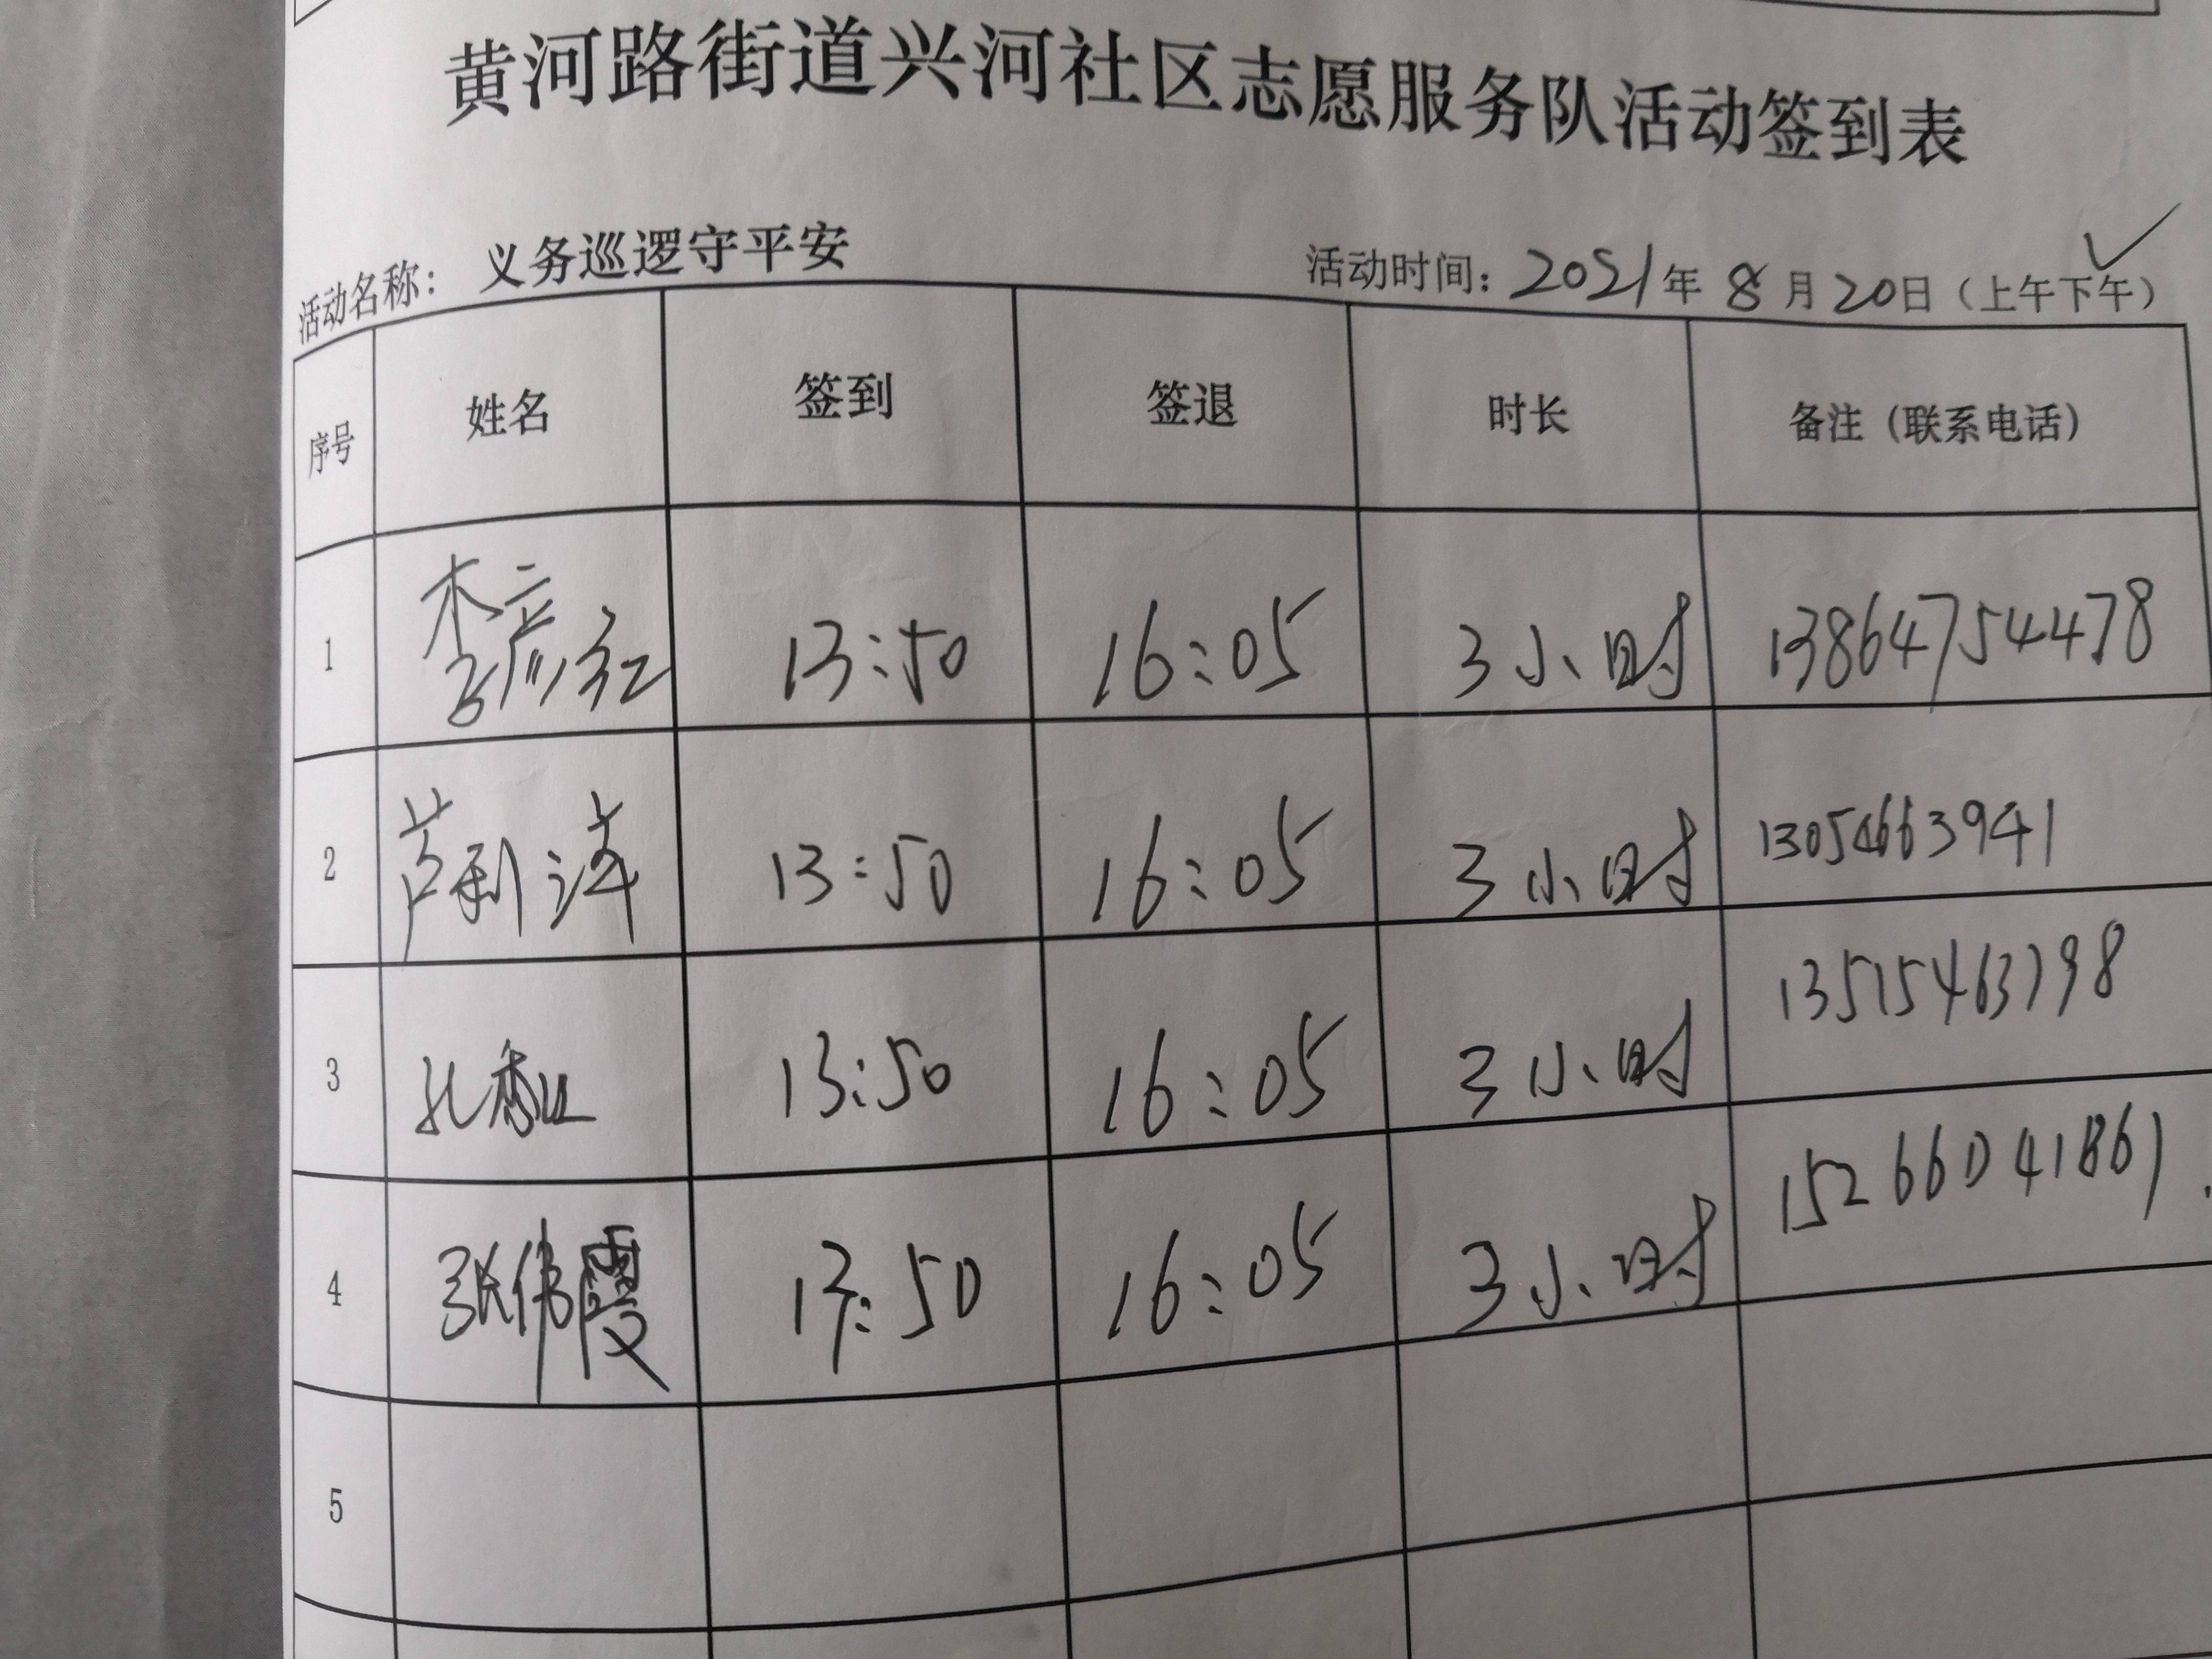 黄河路街道兴河社区志愿服务队活动签到表
活动名称： 义务巡逻守平安 活动时间：2021年 8月20日（上午下午）✓
序号 姓名 签到 签退 时长 备注（联系电话）
1 李彦红 13:50 16:05 3小时 13864754478
2 芦利萍 13:50 16:05 3小时 13054663941
3 13:50 16:05 3小时 13515463798
4 张伟霞 13:50 16:05 3小时 15266041861
5